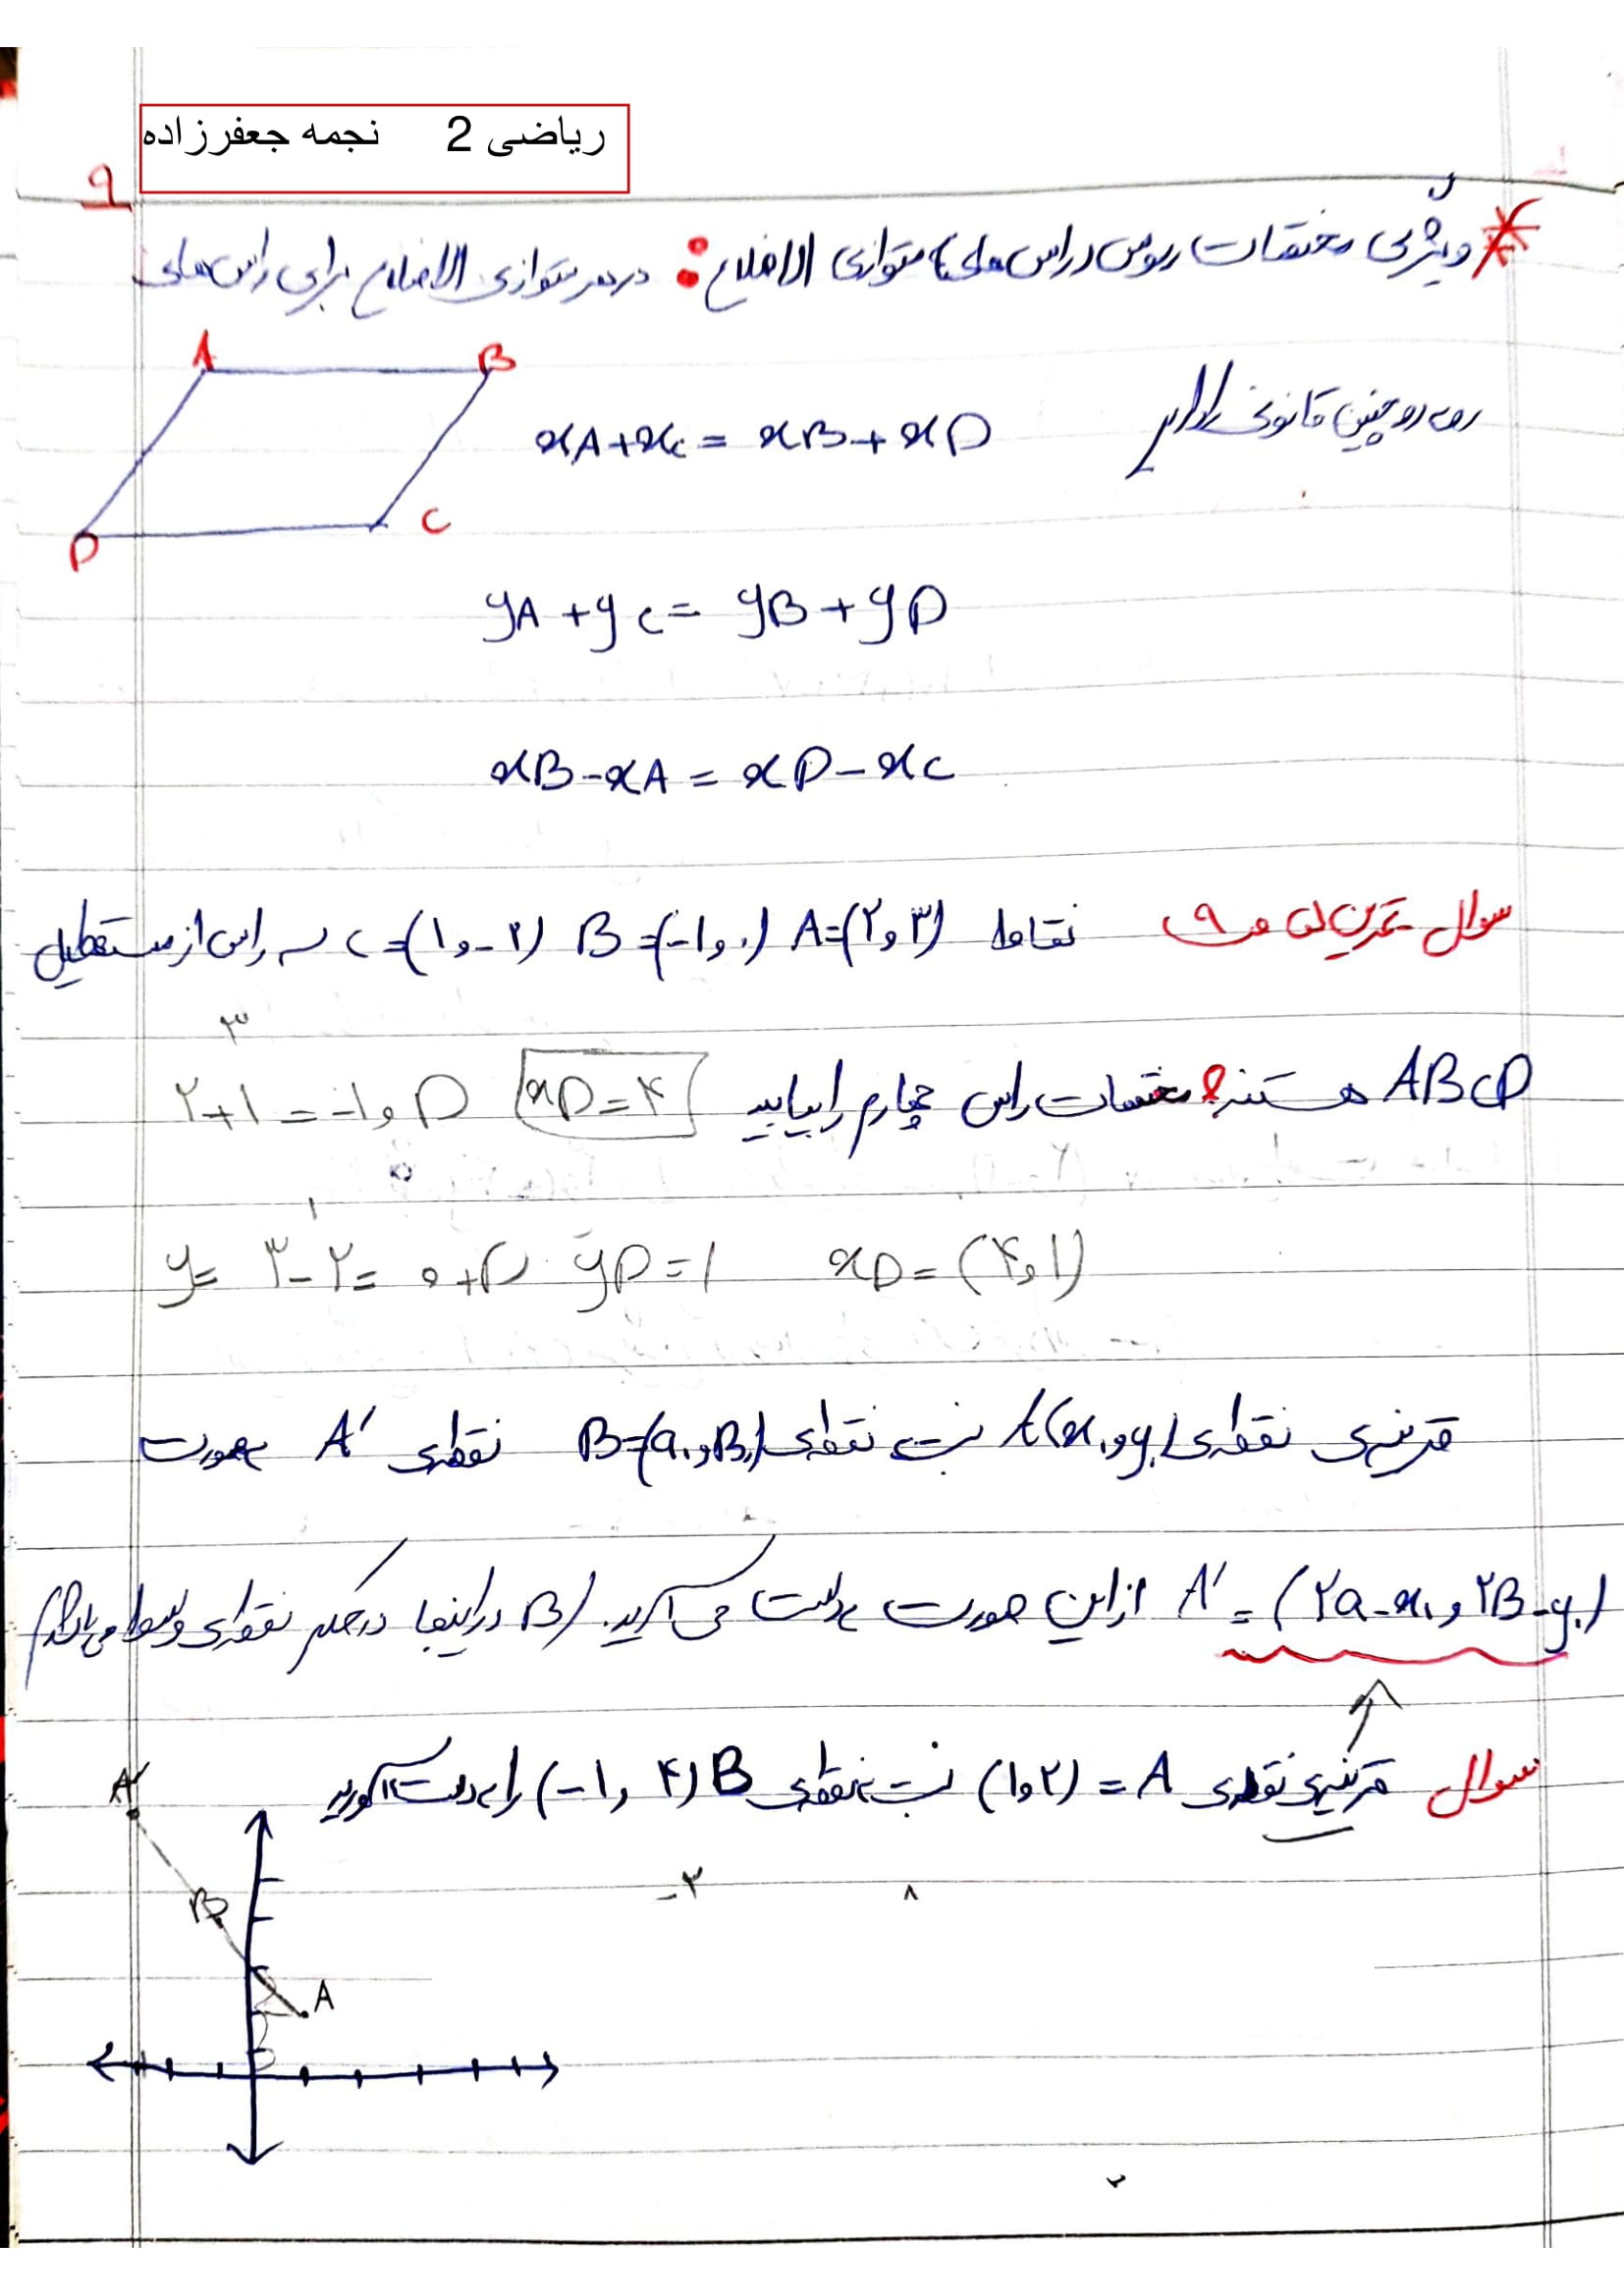 ریاضی 2 نجمه جعفرزاده
۹
* ویژگی مختصات روس راس های متوازی الاضلاع : در هر متوازی الاضلاع برای راس های
A B
روبه رو چنین قانونی را داریم
xA+xC = xB+xD
D C
yA + yC = yB + yD
xB-xA = xD-xC
سوال تمرین ص ۹ نقاط A=(۲و۳) B=(-۱و۰) C=(۱و-۲) سه راس از مستطیل
ABCD هستند مختصات راس چهارم را بیابید xD=۴ ۲+۱ = -۱و D
۳
y= ۳-۲= ۰+D yD=۱ xD=(۴و۱)
۱
قرینه‌ی نقطه‌ی A(x۱و y۱) نسبت نقطه‌ی B=(a۱و B۱) نقطه‌ی A' بصورت
A' = (۲a-x۱ و ۲B-y۱) از این صورت بدست می آید. (B در اینجا در حکم نقطه‌ی وسط می باشد)
سوال قرینه‌ی نقطه‌ی A = (۱و۲) نسبت به نقطه‌ی B (-۱و ۴) را بدست آورید
A'
-۳ ۸
B
A